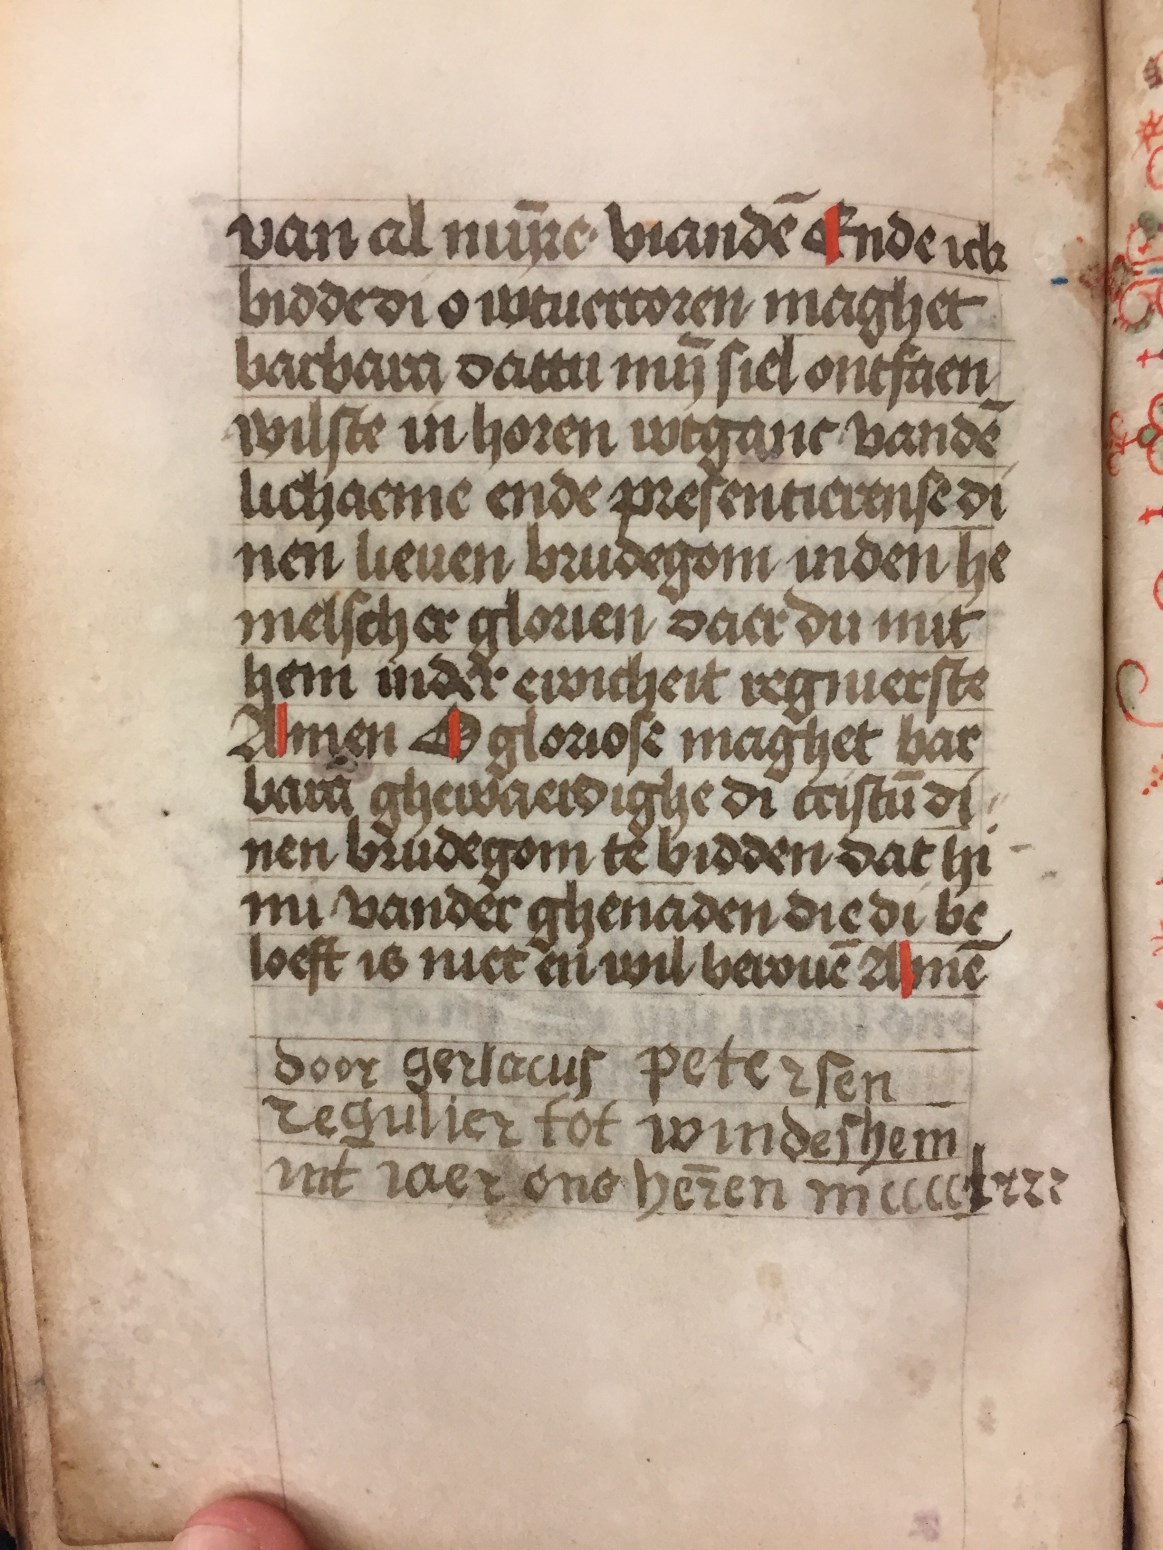 van al mijn̄re viandē Ende ick
bidde di o wtuercoren maghet
barbara dattu mij̄ siel ontfaen
wilste in horen wtganc vandē
lichaeme ende presentierense di
nen lieuen brudegom inden he
melscher glorien daer du mit
hem inder ewicheit regnierste
Amen O gloriose maghet bar
bara ghewaerdighe di cristū di
nen brudegom te bidden dat hi
mi vander ghenaden die di be
loeft is niet en wil berouē Amē
door gerlacus petersen
regulier tot windeshem
int iaer ons heren mcccclxxx